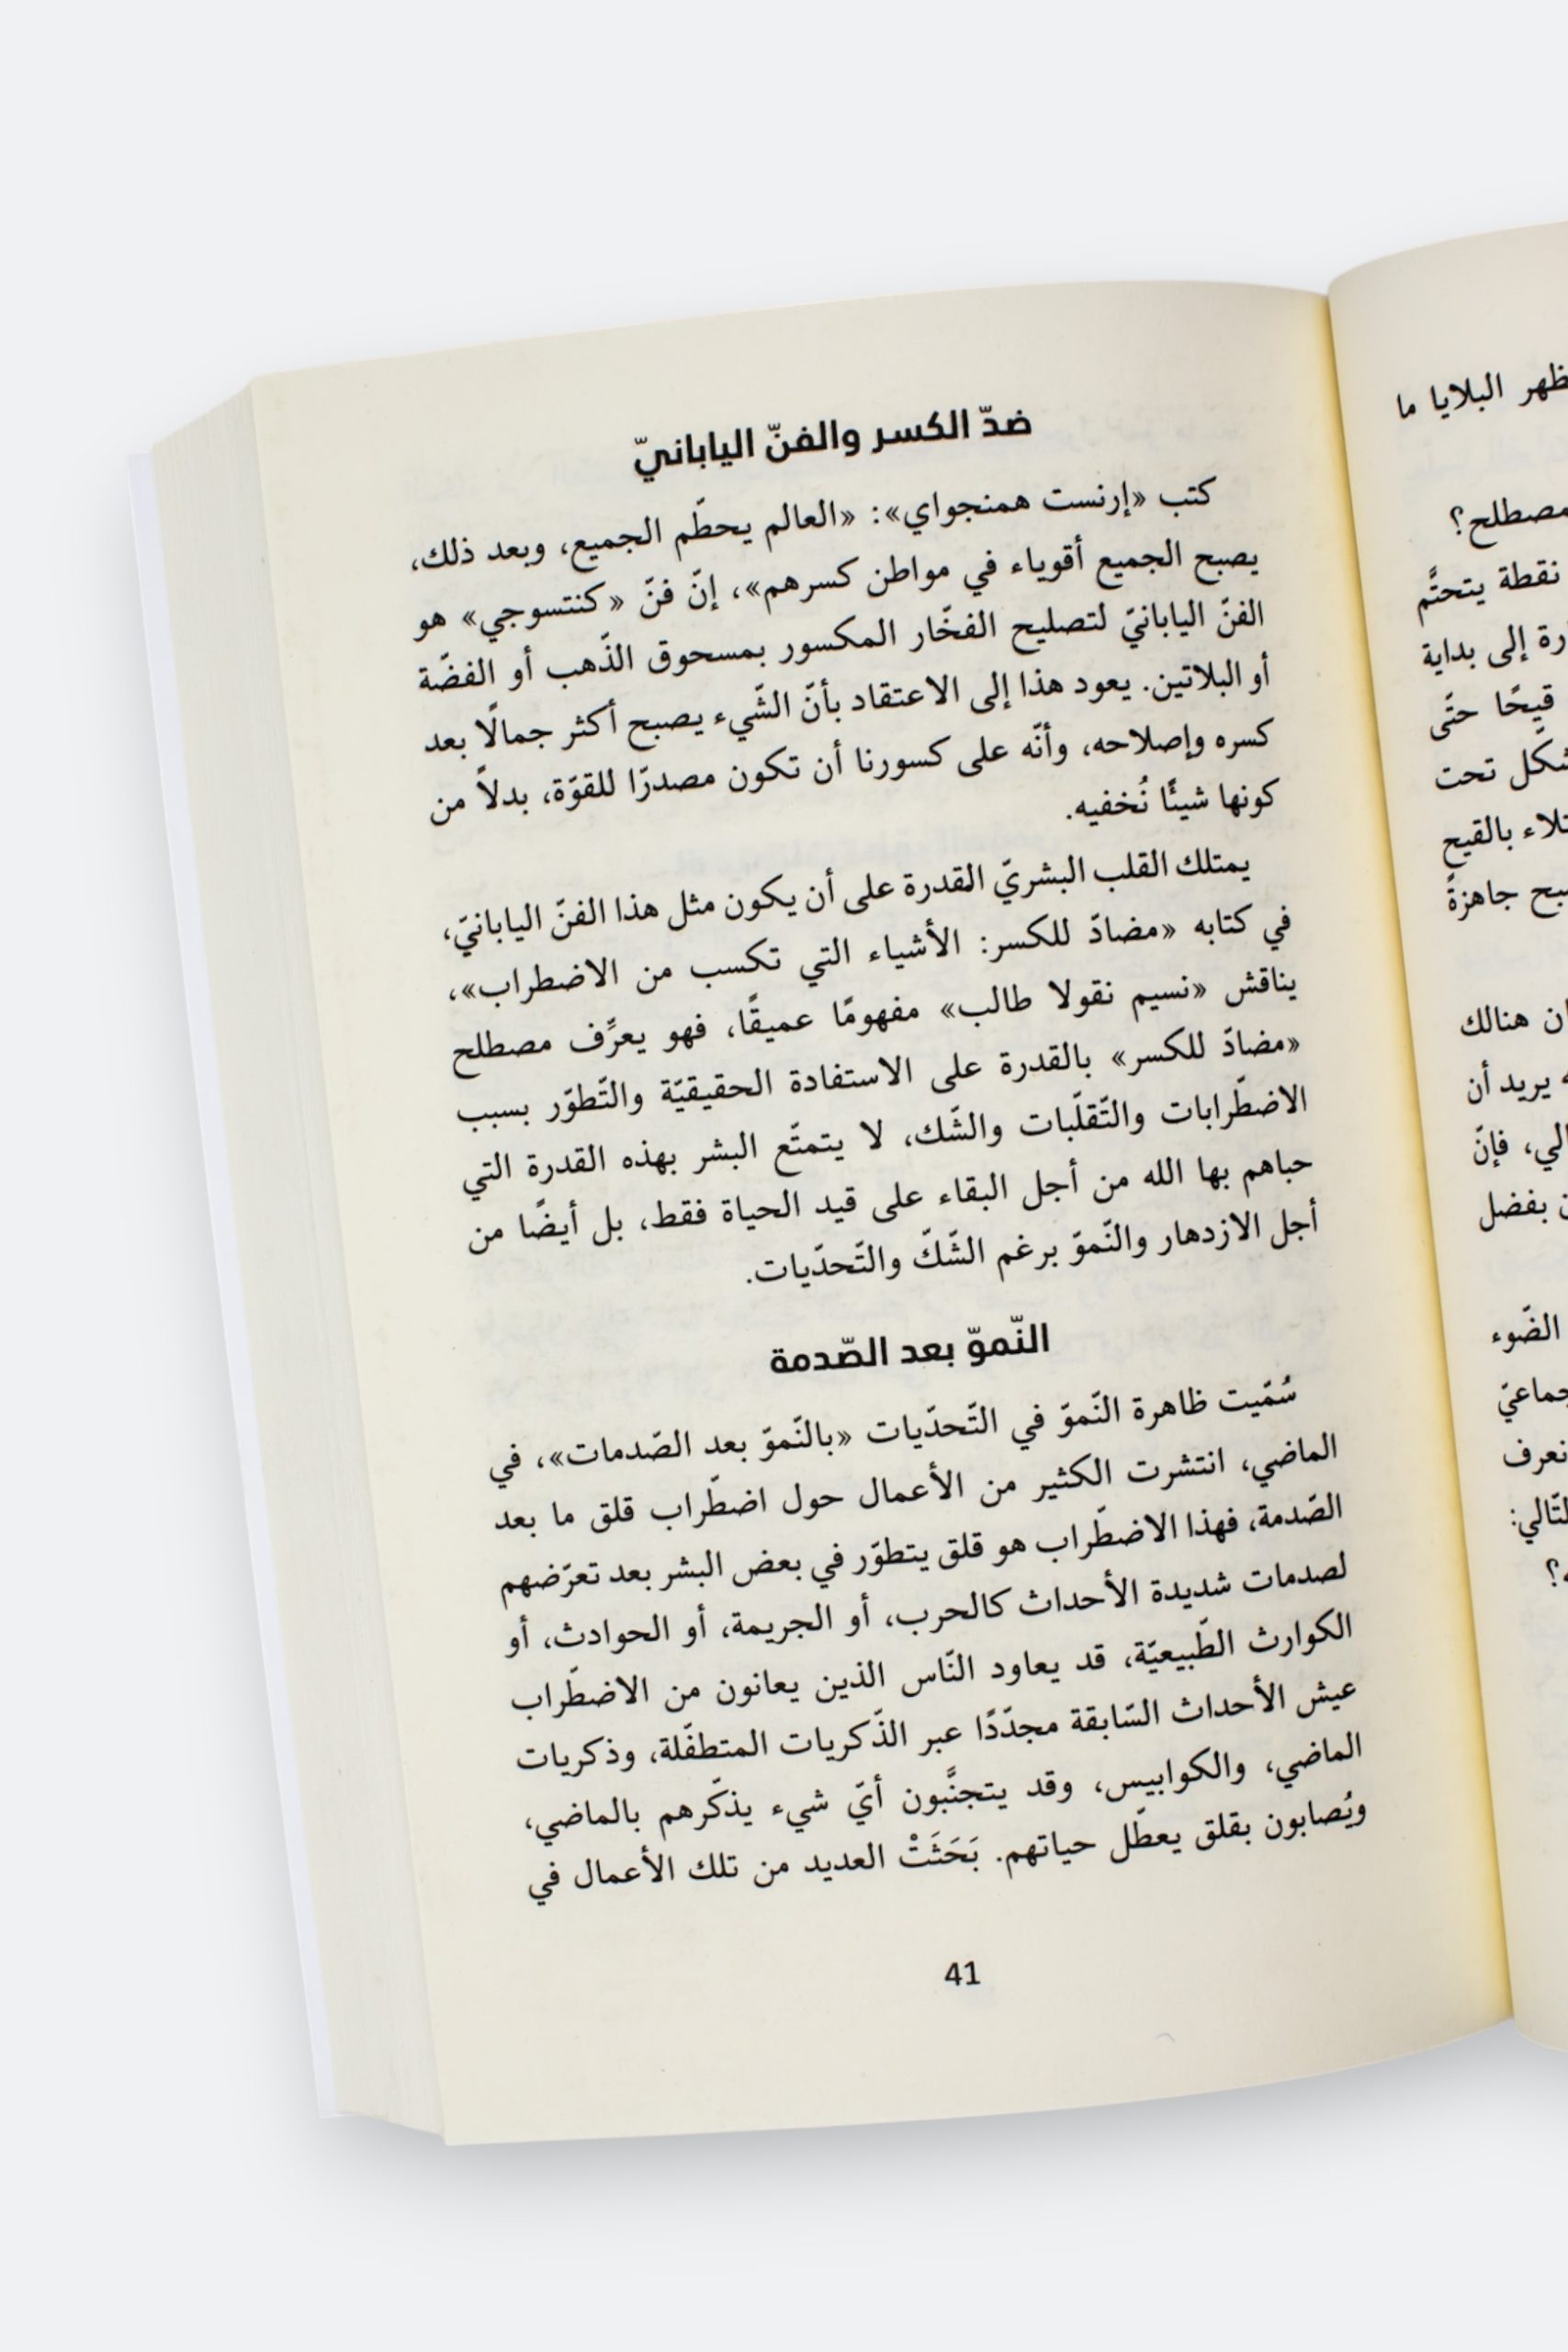 ظهر البلايا ما
مصطلح؟
نقطة يتحتَّم
رة إلى بداية
قيحًا حتّى
شكل تحت
تلاء بالقيح
سبح جاهزةً
ان هنالك
يريد أن
لي، فإنّ
بفضل
الضّوء
جماعيّ
نعرف
لتّالي:
ضدّ الكسر والفنّ اليابانيّ
كتب «إرنست همنجواي»: «العالم يحطّم الجميع، وبعد ذلك،
يصبح الجميع أقوياء في مواطن كسرهم»، إنّ فنّ «كنتسوجي» هو
الفنّ اليابانيّ لتصليح الفخّار المكسور بمسحوق الذّهب أو الفضّة
أو البلاتين. يعود هذا إلى الاعتقاد بأنّ الشّيء يصبح أكثر جمالًا بعد
كسره وإصلاحه، وأنّه على كسورنا أن تكون مصدرًا للقوّة، بدلاً من
كونها شيئًا نُخفيه.
يمتلك القلب البشريّ القدرة على أن يكون مثل هذا الفنّ اليابانيّ،
في كتابه «مضادّ للكسر: الأشياء التي تكسب من الاضطراب»،
يناقش «نسيم نقولا طالب» مفهومًا عميقًا، فهو يعرِّف مصطلح
«مضادّ للكسر» بالقدرة على الاستفادة الحقيقيّة والتّطوّر بسبب
الاضطّرابات والتّقلّبات والشّك، لا يتمتّع البشر بهذه القدرة التي
حباهم بها الله من أجل البقاء على قيد الحياة فقط، بل أيضًا من
أجل الازدهار والنّموّ برغم الشّكّ والتّحدّيات.
النّموّ بعد الصّدمة
سُمّيت ظاهرة النّموّ في التّحدّيات «بالنّموّ بعد الصّدمات»، في
الماضي، انتشرت الكثير من الأعمال حول اضطّراب قلق ما بعد
الصّدمة، فهذا الاضطّراب هو قلق يتطوّر في بعض البشر بعد تعرّضهم
لصدمات شديدة الأحداث كالحرب، أو الجريمة، أو الحوادث، أو
الكوارث الطّبيعيّة، قد يعاود النّاس الذين يعانون من الاضطّراب
عيش الأحداث السّابقة مجدّدًا عبر الذّكريات المتطفّلة، وذكريات
الماضي، والكوابيس، وقد يتجنَّبون أيّ شيء يذكّرهم بالماضي،
ويُصابون بقلق يعطّل حياتهم. بَحَثَتْ العديد من تلك الأعمال في
41